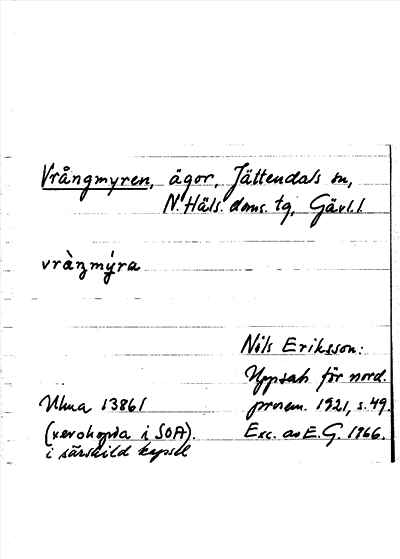 Vrångmyren, ägor, Jättendals sn,
N. Häls. doms. tg, Gävl.l.
vràŋmýra
Nils Eriksson:
Uppsats för nord.
Ulma 13861 prosem. 1921, s. 49.
(xerokopia i SOA). Exc. av E.G. 1966.
i särskild kapsel